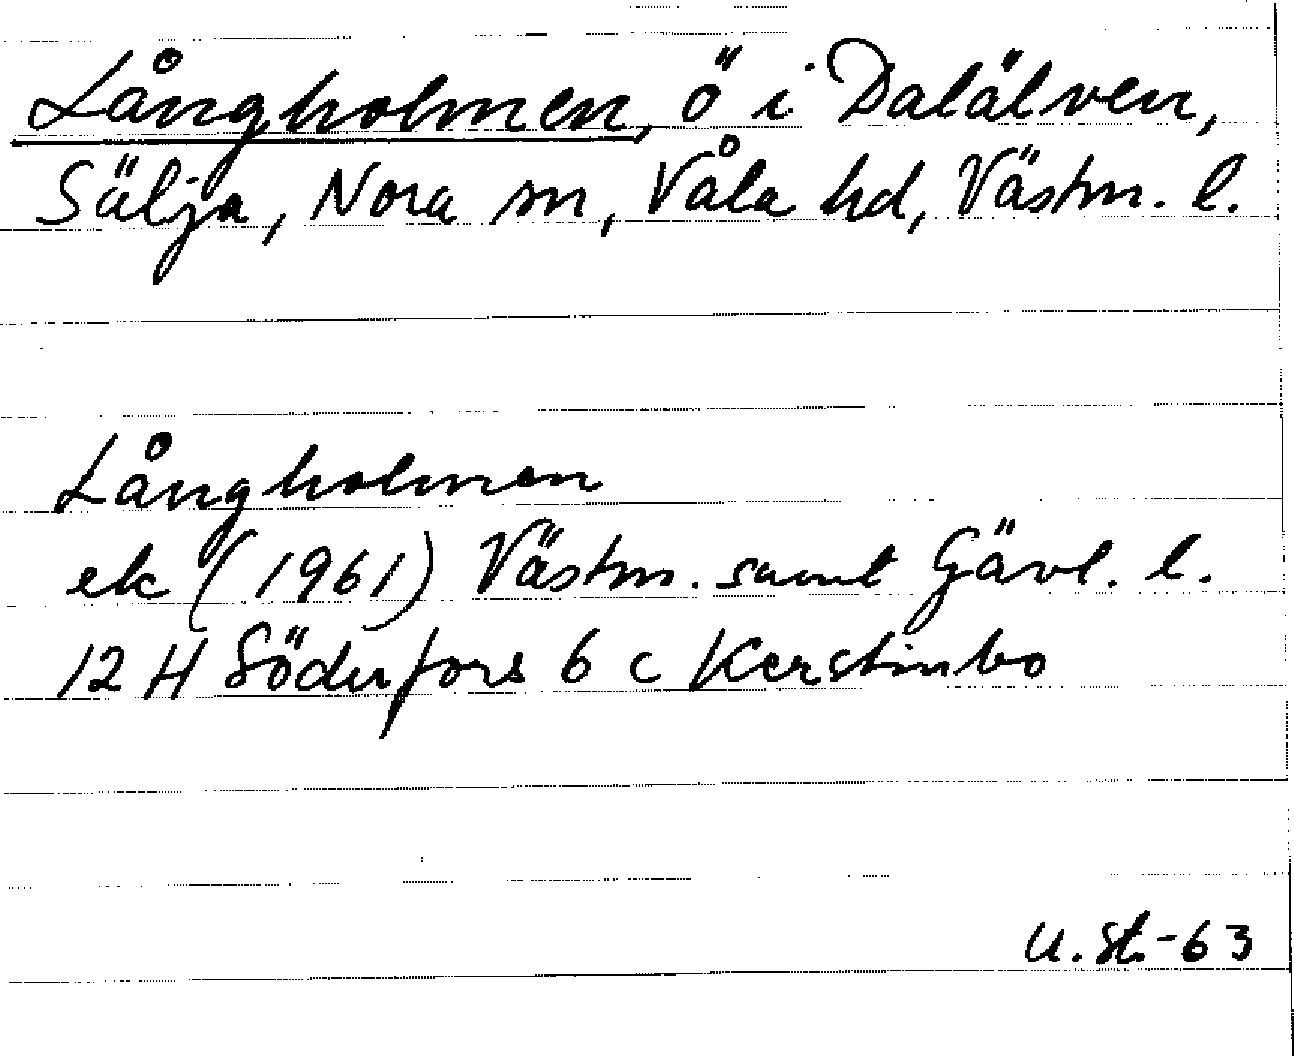 Långholmen, ö i Dalälven,
Sälja, Nora sn, Våla hd, Västm. l.
Långholmen
ek (1961) Västm. samt Gävl. l.
12 H Söderfors 6 c Kerstinbo
U. St. -63